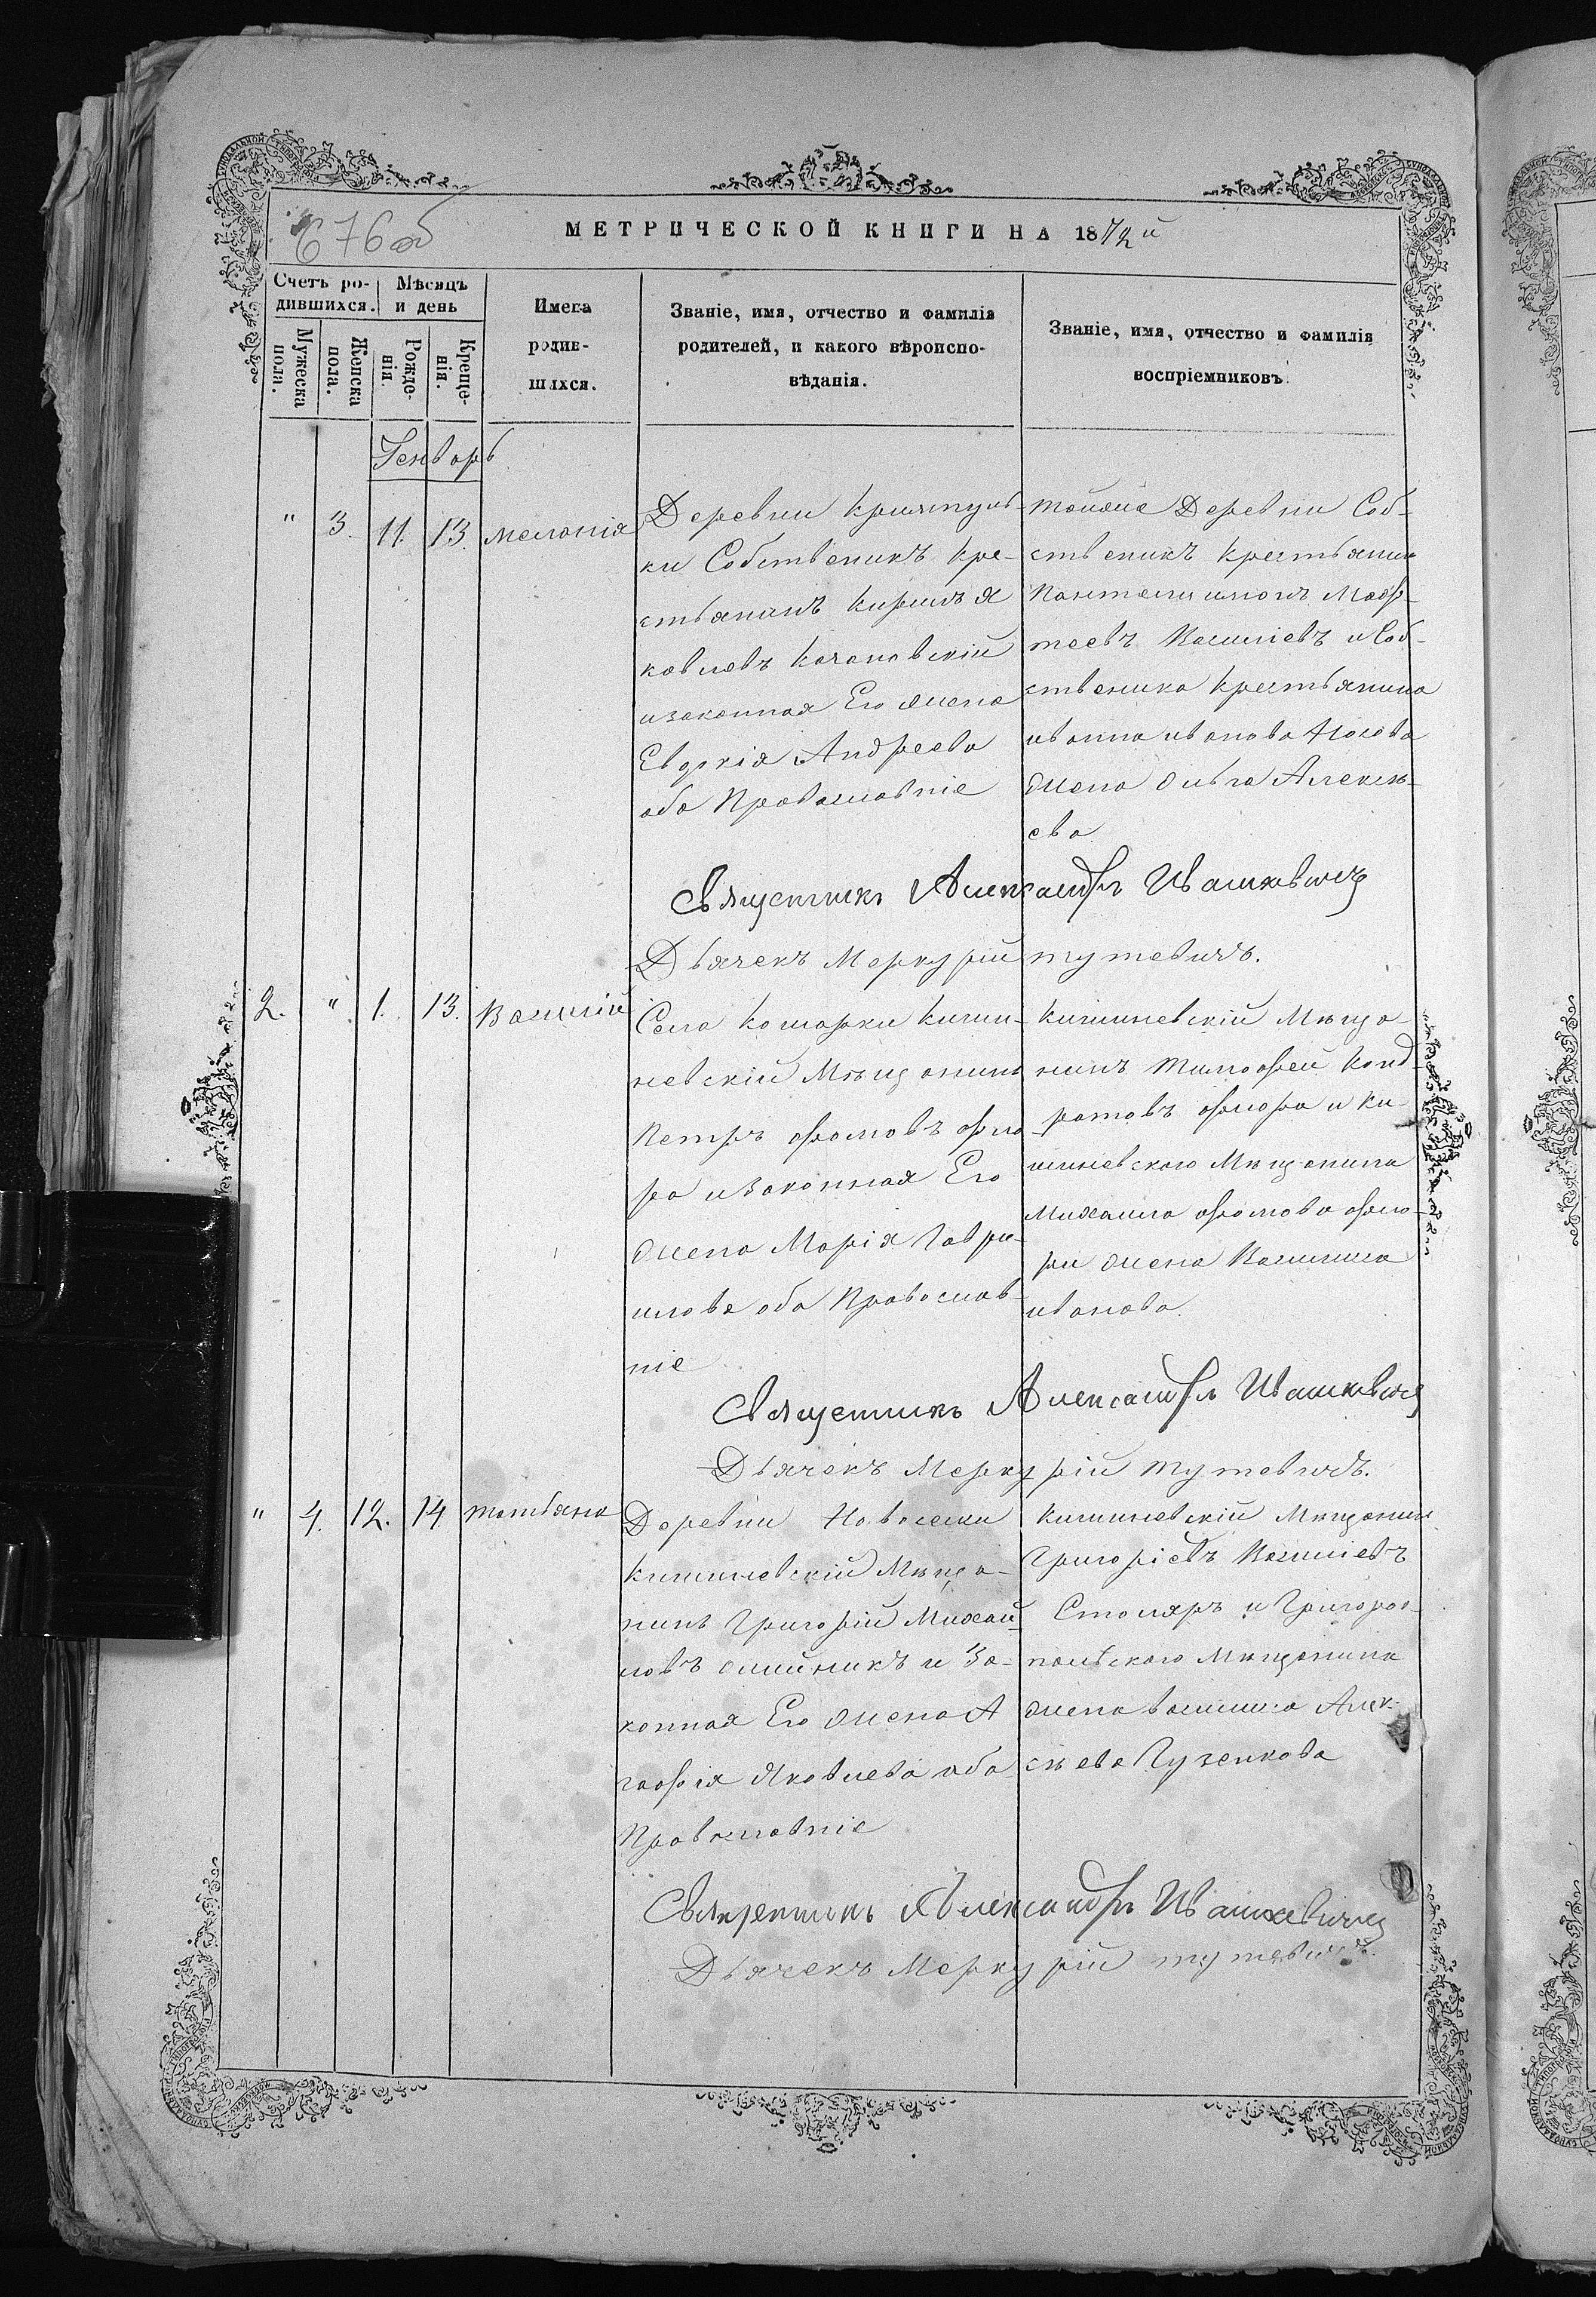 676 об
МЕТРИЧЕСКОЙ КНИГИ НА 1872 й
Счетъ ро-
дившихся.
Мѣсяцъ
и день
Мужеска
пола.
Женска
пола.
Рожде-
нія.
Креще-
нія.
Имена
родив-
шихся.
Званіе, имя, отчество и фамилія
родителей, и какого вѣроиспо-
вѣданія.
Званіе, имя, отчество и фамилія
воспріемниковъ.
Генварь
" 3. 11. 13. Меланія
Деревни
ки Собственикъ кре-
стьянинъ Кирилъ Я
ковлевъ Качановскій
изаконная Его жена
Евдокія Андреева
оба Православніе
тойже Деревни Соб-
ственикъ крестьянин
Пантелиимонъ Маѳ-
теевъ Василіевъ и Соб-
ственика крестьянина
ивана иванова Носова
жена Ольга Алексѣ-
ева
Священникъ Александръ Ивашкевичъ
Дьячекъ Меркурій тутевичъ.
2. " 1. 13. Василій
Села Комарки Киши-
невскій Мѣщанинъ
Петръ ѳомовъ фло
ра изаконная Его
жена Марія Гаври-
илова оба Православ-
ніе
Кишиневскій Мѣща-
нинъ тимоѳей Конд-
ратовъ флора и Ки-
шиневскаго Мѣщанина
Михаила ѳомова фло-
ри жена Василиса
иванова.
Священникъ Александръ Ивашкевичъ
Дьячекъ Меркурій тутевичъ.
" 4. 12. 14. татьяна
Деревни Новоселки
Кишиневскій Мѣща-
нинъ Григорій Михай-
ловъ олийникъ и За-
конная Его жена А
гафія Яковлева оба
Православніе
Кишиневскій Мѣщанин
Григоріевъ Василіевъ
Столяръ и Григоріо-
польскаго Мѣщанина
жена василиса Алек-
сѣева Гузенкова
Священникъ Александръ Ивашкевичъ
Дьячекъ Меркурій тутевичъ.